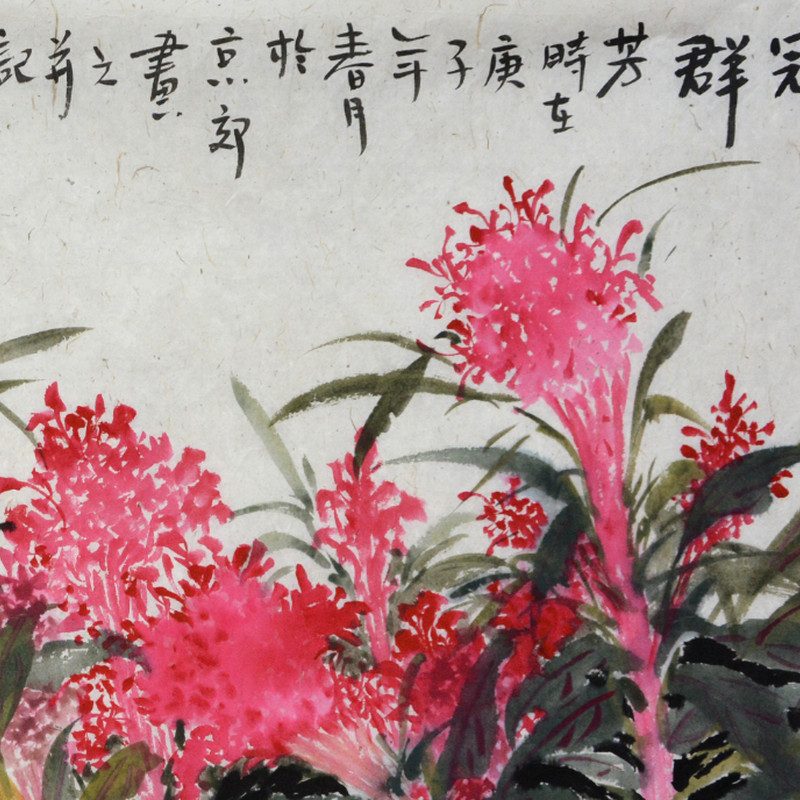 冠群芳時在庚子年春月於京郊畫之并記